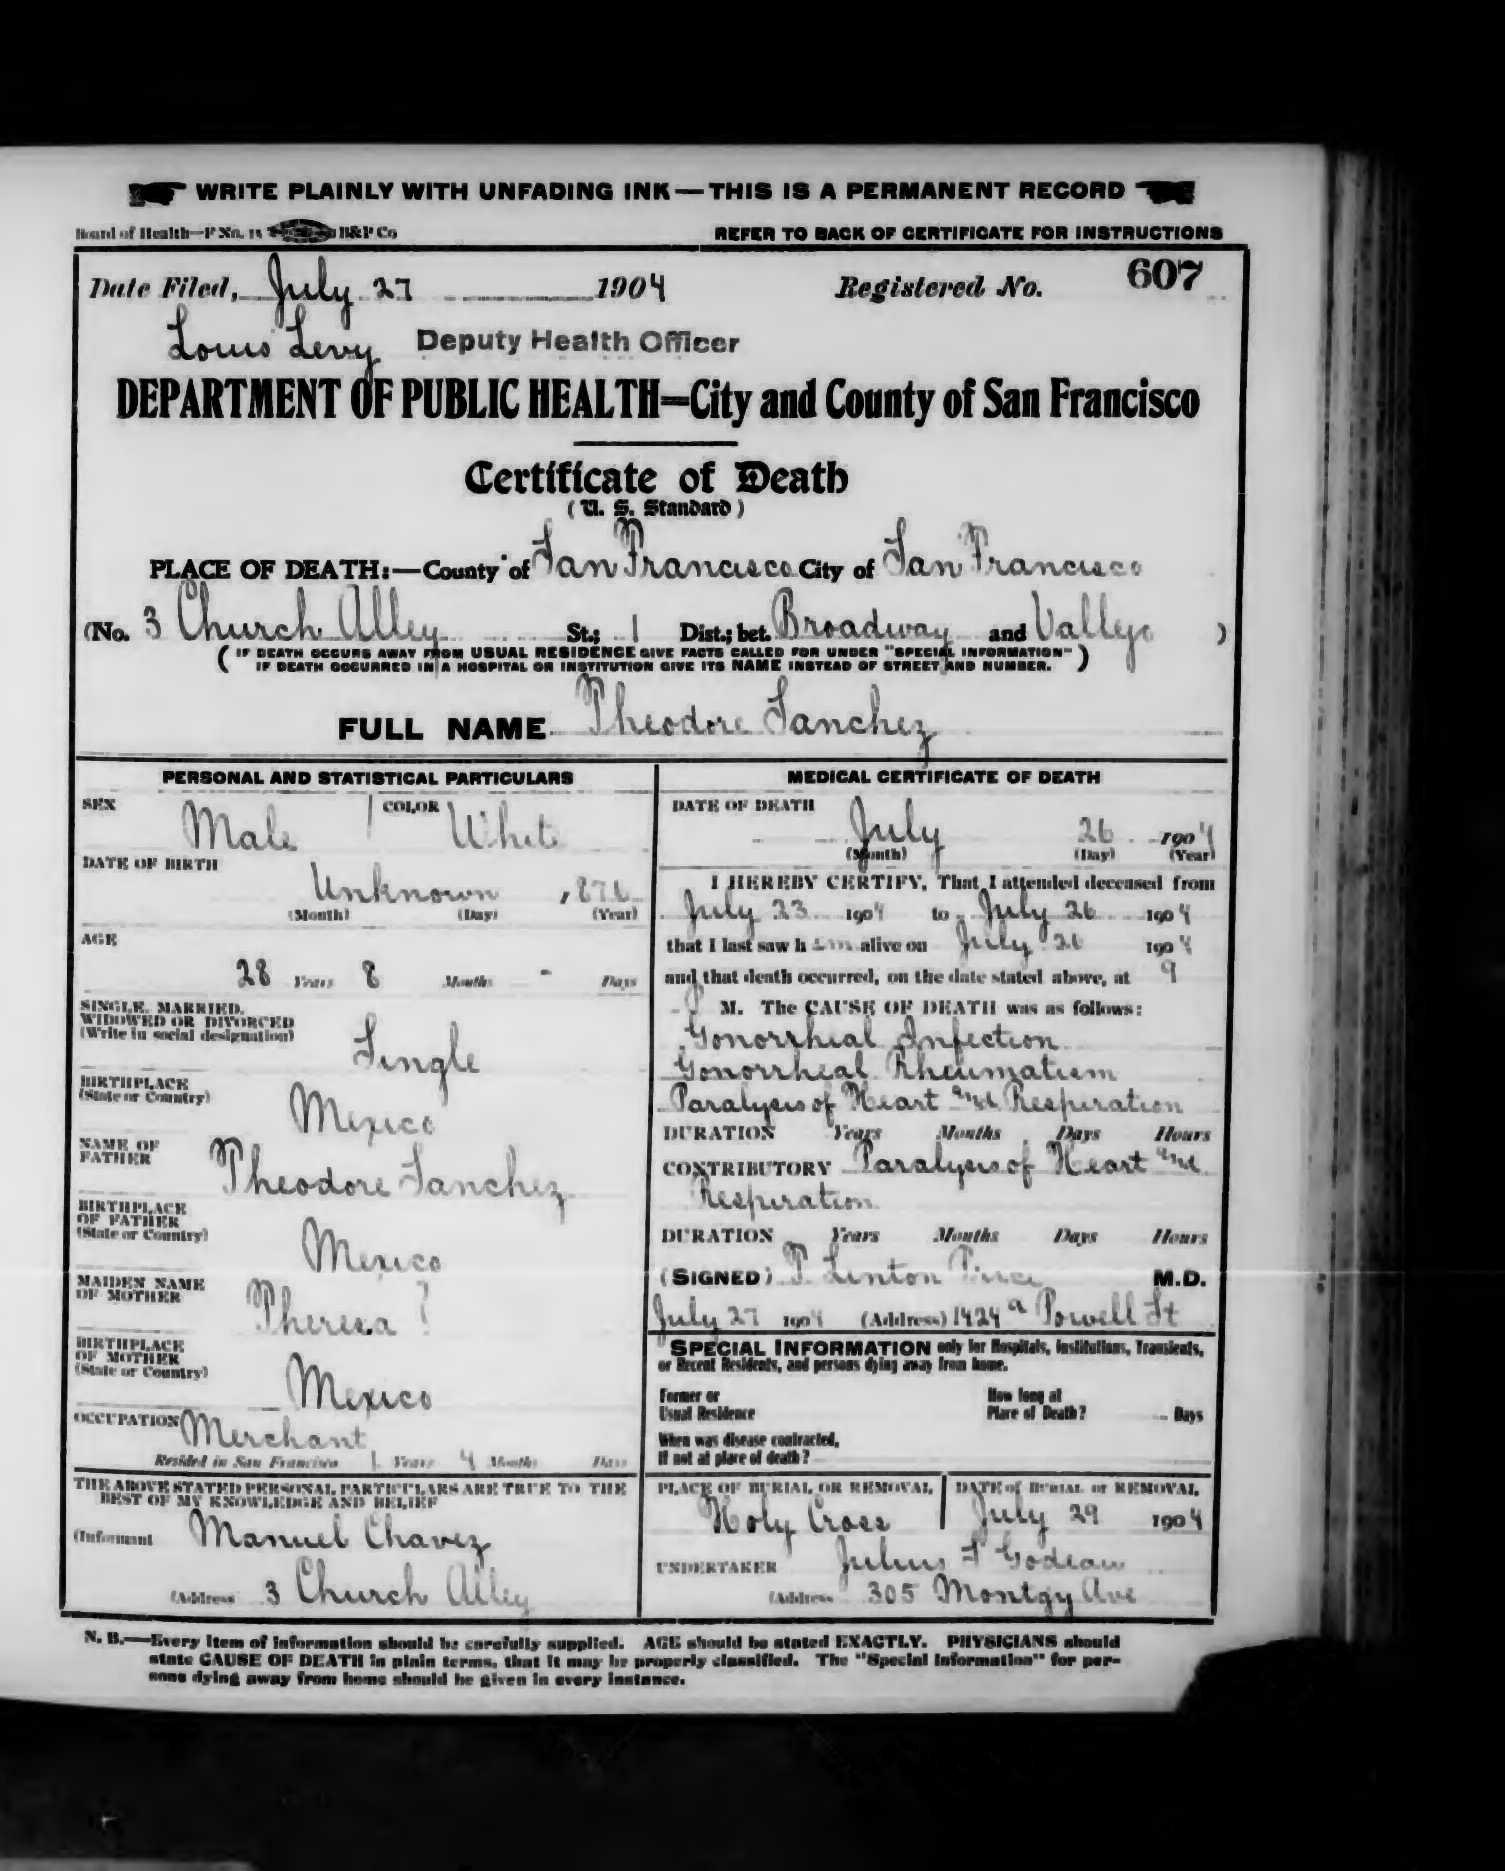 WRITE PLAINLY WITH UNFADING INK — THIS IS A PERMANENT RECORD
Board of Health—F No. 15 B&P Co REFER TO BACK OF CERTIFICATE FOR INSTRUCTIONS
Date Filed, July 27 1904 Registered No. 607
Louis Levy Deputy Health Officer
DEPARTMENT OF PUBLIC HEALTH=City and County of San Francisco
Certificate of Death
(U. S. Standard)
PLACE OF DEATH:—County of San Francisco City of San Francisco
(No. 3 Church Alley St.; 1 Dist.; bet. Broadway and Vallejo )
( IF DEATH OCCURS AWAY FROM USUAL RESIDENCE GIVE FACTS CALLED FOR UNDER "SPECIAL INFORMATION"
IF DEATH OCCURRED IN A HOSPITAL OR INSTITUTION GIVE ITS NAME INSTEAD OF STREET AND NUMBER. )
FULL NAME Theodore Sanchez
PERSONAL AND STATISTICAL PARTICULARS
SEX Male COLOR White
DATE OF BIRTH
Unknown , 876
(Month) (Day) (Year)
AGE
28 Years 8 Months - Days
SINGLE, MARRIED,
WIDOWED OR DIVORCED
(Write in social designation)
Single
BIRTHPLACE
(State or Country)
Mexico
NAME OF
FATHER
Theodore Sanchez
BIRTHPLACE
OF FATHER
(State or Country)
Mexico
MAIDEN NAME
OF MOTHER
Theresa ?
BIRTHPLACE
OF MOTHER
(State or Country)
Mexico
OCCUPATION Merchant
Resided in San Francisco 1 Years 4 Months Days
THE ABOVE STATED PERSONAL PARTICULARS ARE TRUE TO THE
BEST OF MY KNOWLEDGE AND BELIEF
(Informant Manuel Chavez
(Address 3 Church Alley
MEDICAL CERTIFICATE OF DEATH
DATE OF DEATH
July 26 1904
(Month) (Day) (Year)
I HEREBY CERTIFY, That I attended deceased from
July 23 1904 to July 26 1904
that I last saw h im alive on July 26 1904
and that death occurred, on the date stated above, at 9
P M. The CAUSE OF DEATH was as follows:
Gonorrhial Infection
Gonorrheal Rheumatism
Paralysis of Heart and Respiration
DURATION Years Months Days Hours
CONTRIBUTORY Paralysis of Heart and
Respiration
DURATION Years Months Days Hours
(SIGNED) T. Linton Price M.D.
July 27 1904 (Address) 1424 a Powell St
SPECIAL INFORMATION only for Hospitals, Institutions, Transients,
or Recent Residents, and persons dying away from home.
Former or
Usual Residence
How long at
Place of Death? Days
When was disease contracted,
If not at place of death?
PLACE OF BURIAL OR REMOVAL DATE of BURIAL or REMOVAL
Holy Cross July 29 1904
UNDERTAKER Julius S Godeau
(Address 305 Montgy Ave
N. B.—Every item of information should be carefully supplied. AGE should be stated EXACTLY. PHYSICIANS should
state CAUSE OF DEATH in plain terms, that it may be properly classified. The "Special Information" for per-
sons dying away from home should be given in every instance.